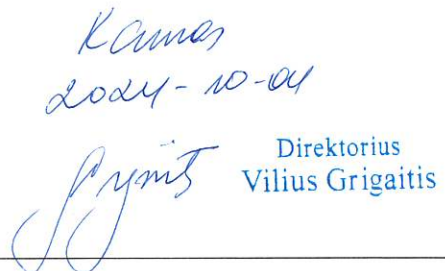 Kaunas
2024-10-04
Direktorius
Vilius Grigaitis